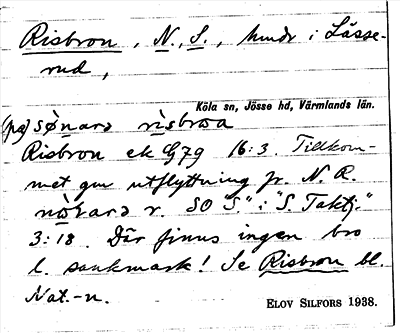 Risbron, N., S., hmdr i Lässe-
rud,
Köla sn, Jösse hd, Värmlands län.
(på) sònara rìsbroa
Risbron ek G79 16:3. Tillkom-
met gm utflyttning fr. N. R.
nòrara r. SO "S." i "S. Taktj."
3:18. Där finns ingen bro
l. sankmark! Se Risbron bl.
Nat.-n.
ELOV SILFORS 1938.